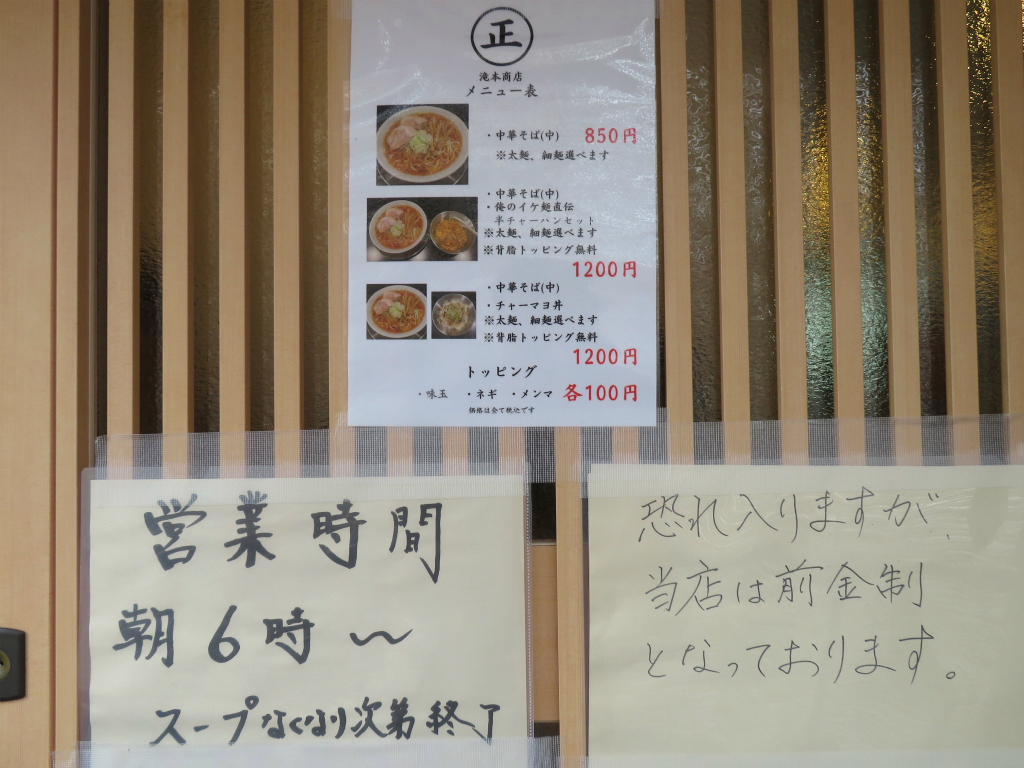 正
滝本商店
メニュー表
・中華そば(中) 850円
※太麺、細麺選べます
・中華そば(中)
・俺のイケ麺直伝
半チャーハンセット
※太麺、細麺選べます
※背脂トッピング無料
1200円
・中華そば(中)
・チャーマヨ丼
※太麺、細麺選べます
※背脂トッピング無料
1200円
トッピング
・味玉 ・ネギ ・メンマ 各100円
価格は全て税込です
営業時間
朝6時～
スープなくなり次第終了
恐れ入りますが、
当店は前金制
となっております。